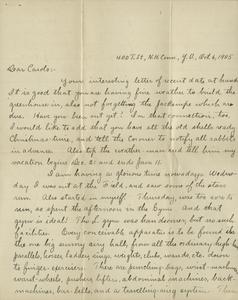 400 T. St, N.H. Conn, Y.D., Oct 6, 1905
Dear Carols:-
Your interesting letter of recent date at hand.
It is good that you are having fine weather to build the
greenhouse in, also not forgetting the jacksnipe which are
due. Have you been out yet? In that connection, too,
I would like to ask that you have all the old shells ready
Christmas-time, and tell the corner to notify all rabbits
in advance. Also tap the weather-man and tell him my
vacation begins Dec. 21 and ends Jan 11.
I am having a glorious time nowadays. Wednes-
day I was at the Field, and saw some of the stars
run. Also started in myself. Thursday was too sore to
run, so spent the afternoon in the Gym. And that
gym is ideal! The L gym was handsomer, but no such
facilities. Every conceivable apparatus is to be found in
the one big sunny airy hall, from all the ordinary high
parallels, horses, ladders, rings, weights, clubs, wands, etc. down
to finger-exercisers. There are punching-bags, wrist-machines,
waist-wheels, pushing lifters, abdominal machines, back
machines, bar-bells, and a travelling-ring system. Then